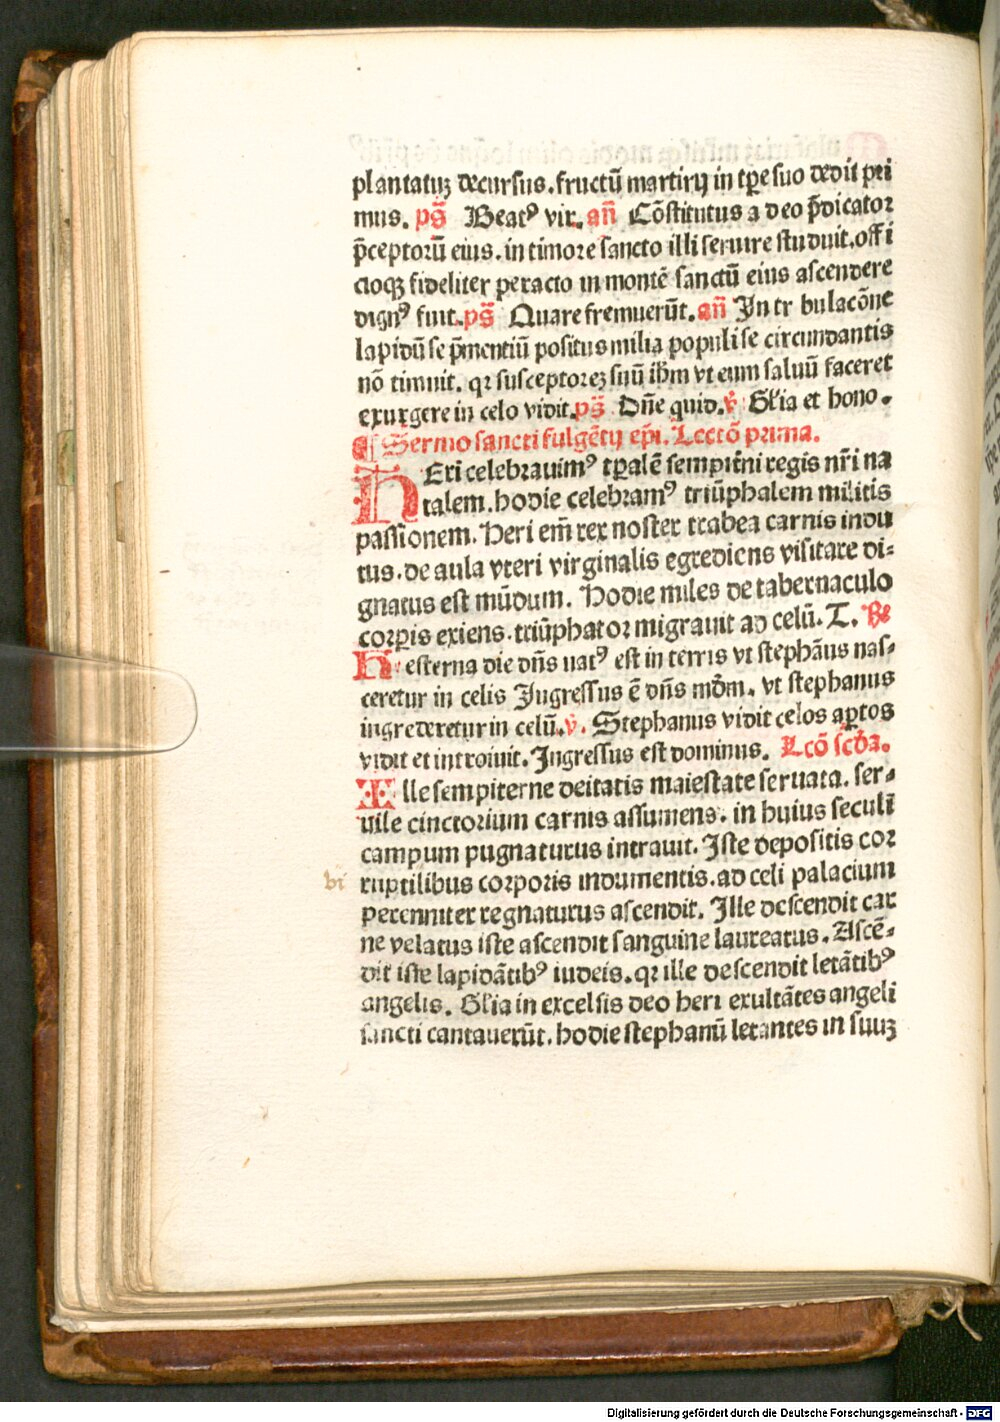 plantatuꝫ decursus. fructū martirij in tꝑe suo dedit pri
mus. pṡ̄ Beatꝰ vir. an̄ Cōstitutus a deo p̄dicator
p̄ceptorū eius. in timore sancto illi seruire studuit. offi
cioqꝫ fideliter peracto in montē sanctū eius ascendere
dignꝰ fuit. pṡ̄ Quare fremuerūt. an̄ In tr bulacōne
lapidū se p̄mentiū positus milia populi se circundantis
nō timuit. qꝛ susceptoreꝫ suū ihm̄ vt eum saluū faceret
exurgere in celo vidit. pṡ̄ Dn̄e quid. v̇ Gl̄ia et hono.
¶ Sermo sancti fulgētij ep̄i. Lectō prima.
HEri celebrauimꝰ tꝑalē sempit̄ni regis nr̄i na
talem. hodie celebramꝰ triūphalem militis
passionem. Heri em̄ rex noster trabea carnis indu
tus. de aula vteri virginalis egrediens visitare di⸗
gnatus est mūdum. Hodie miles de tabernaculo
corꝑis exiens. triūphator migrauit ad celū. T. ℟
Hesterna die dn̄s natꝰ est in terris vt stephāus nas⸗
ceretur in celis Ingressus ē dn̄s mūdm. vt stephanus
ingrederetur in celū. v̇. Stephanus vidit celos aꝑtos
vidit et introiuit. Ingressus est dominus. Lcō scd̄a.
Ille sempiterne deitatis maiestate seruata. ser⸗
uile cinctorium carnis assumens. in huius seculi
campum pugnaturus intrauit. Iste depositis cor
vi
ruptilibus corporis indumentis. ad celi palacium
perenniter regnaturus ascendit. Ille descendit car
ne velatus iste ascendit sanguine laureatus. Ascē⸗
dit iste lapidātibꝰ iudeis. qꝛ ille descendit letātibꝰ
angelis. Gl̄ia in excelsis deo heri exultātes angeli
sancti cantauerūt. hodie stephanū letantes in suuꝫ
Digitalisierung gefördert durch die Deutsche Forschungsgemeinschaft - DFG